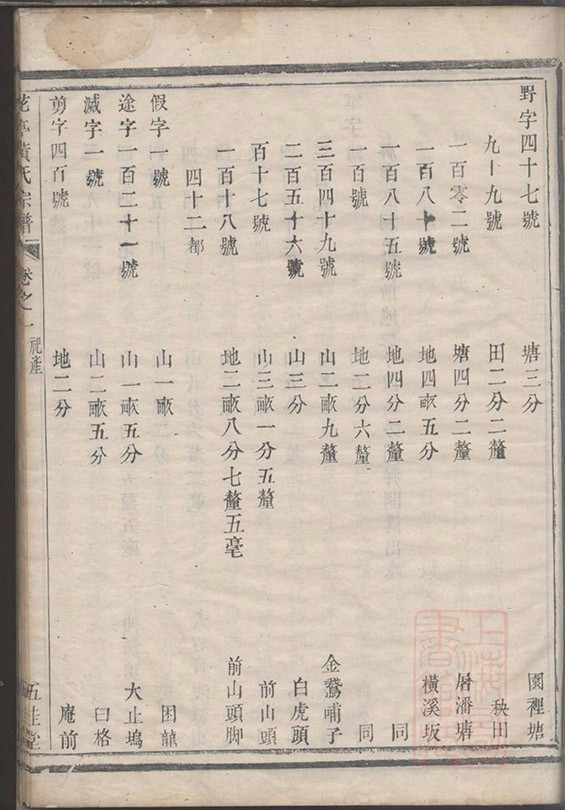 野字四十七號 塘三分 園裡塘
九十九號 田二分二釐 秧田
一百零二號 塘四分二釐 屠潘塘
一百八十號 地四畝五分 橫溪坂
一百八十五號 地四分二釐 同
一百號 地二分六釐 同
三百四十九號 山二畝九釐 金鵞哺子
二百五十六號 山三分 白虎頭
百十七號 山三畝一分五釐 前山頭
一百十八號 地二畝八分七釐五毫 前山頭脚
四十二都
假字一號 山一畝 困龍
途字一百二十一號 山一畝五分 大止塢
滅字一號 山二畝五分 曰格
剪字四百號 地二分 庵前
黃氏宗譜 卷之一 祀產 五桂堂
上海 書